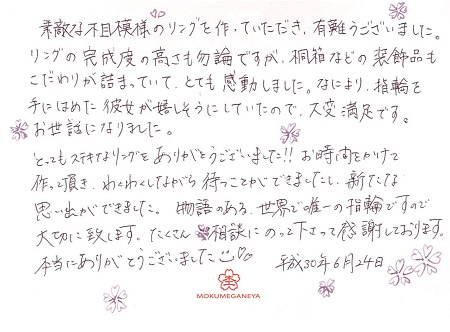 素敵な木目模様のリングを作っていただき、有難うございました。
リングの完成度の高さも勿論ですが、桐箱などの装飾品も
こだわりが詰まっていて、とても感動しました。なにより、指輪を
手にはめた彼女が嬉しそうにしていたので、大変満足です。
お世話になりました。
とってもステキなリングをありがとうございました!! お時間をかけて
作って頂き、わくわくしながら待つことができましたし、新たな
思い出ができました。物語のある、世界で唯一の指輪ですので
大切に致します。たくさん相談にのって下さって感謝しております。
本当にありがとうございました 平成30年6月24日
MOKUMEGANEYA